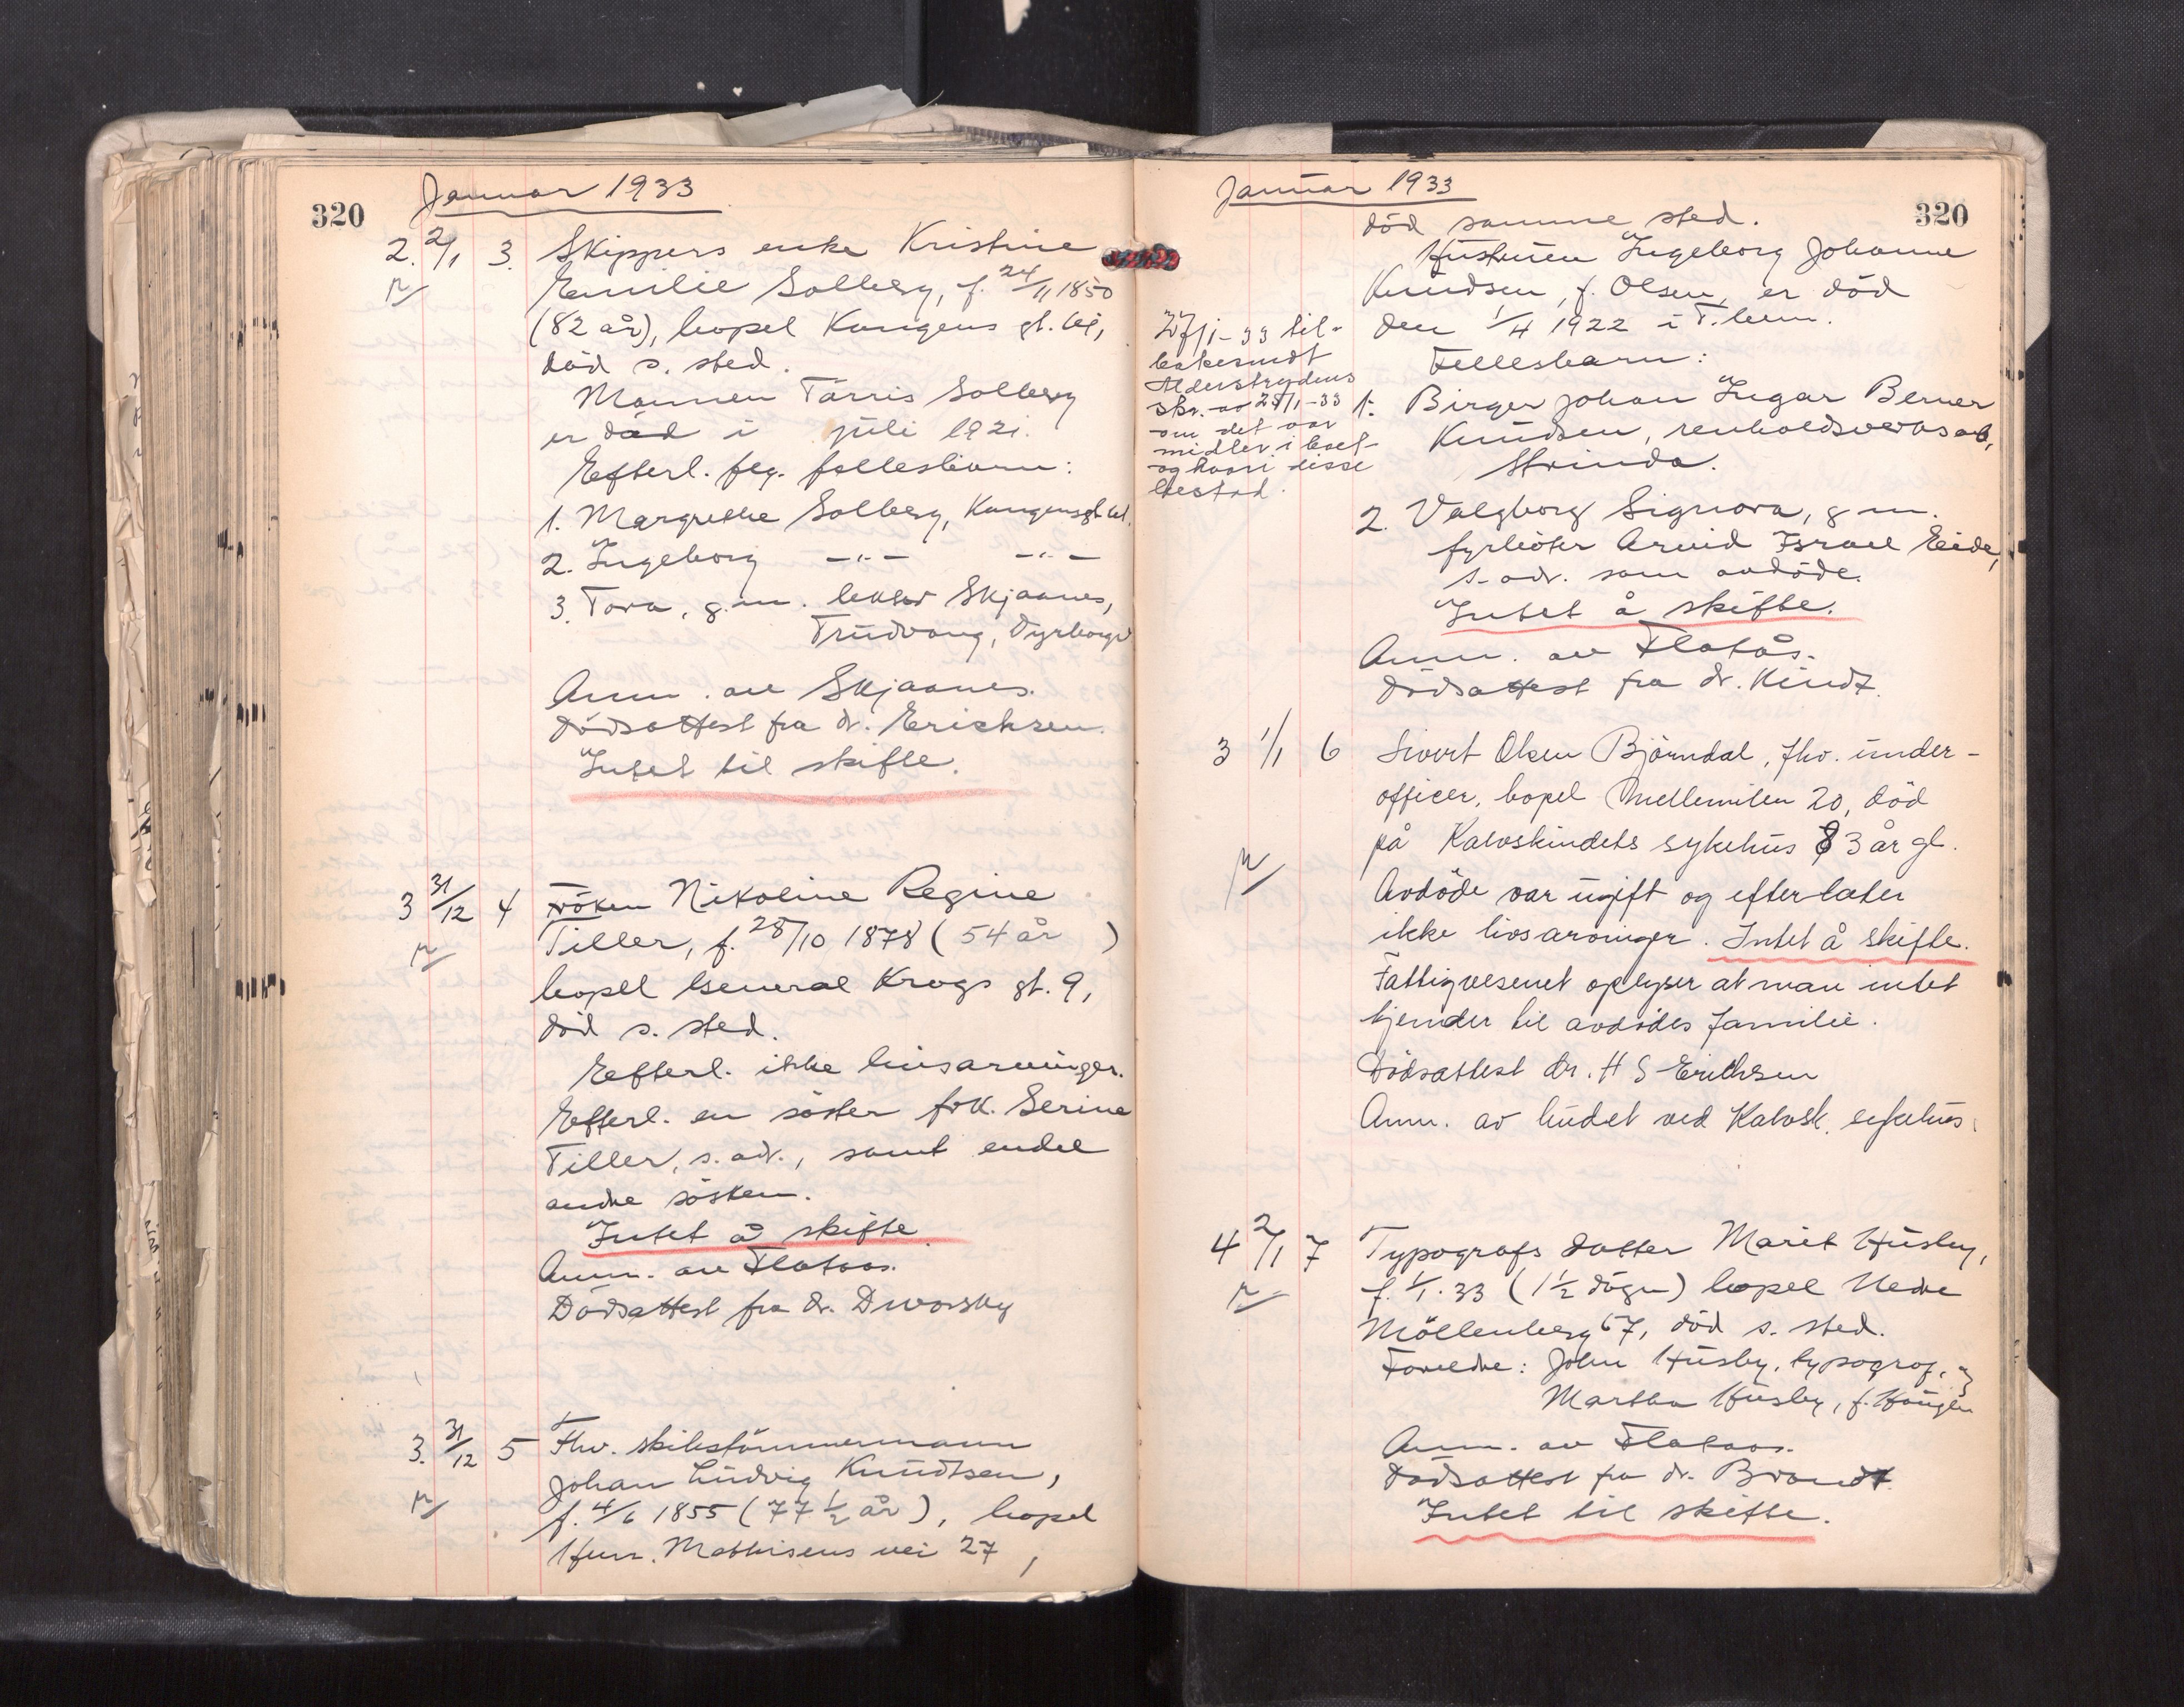 320
Januar 1933
2. 2/1 3. Skippers enke Kristine
Emilie Solberg, f. 24/11 1850
(82 år), bopel Kongens gt.
död s. sted.
Mannen Tårris Solberg
er död i juli 1921.
Efterl. flg. fellesbarn:
1. Margrethe Solberg, Kongensgt
2. Ingeborg -"- -"-
3. Tora, g.m. lektor Skjaanes,
Trudvang, Dyrborgv
Anm. av Skjaanes.
Dödsattest fra dr. Erichsen.
Intet til skifte.
3 31/12 4 Fröken Nikoline Regine
Tiller, f. 28/10 1878 (54 år )
bopel General Krogs gt. 9,
död s. sted.
Efterl. ikke livsarvinger.
Efterl. en söster frk. Serine
Tiller, s. adr., samt endel
andre sösken.
Intet å skifte.
Anm. av Flataas.
Dödsattest fra dr. Dworsky
3. 31/12 5 Fhv. skibstömmermann
Johan Ludvig Knudtsen,
f. 4/6 1855 (77 1/2 år), bopel
Hern. Mathisens vei 27,
Januar 1933
320
död samme sted.
Hustruen Ingeborg Johanne
Knudsen, f. Olsen, er död
den 1/4 1922 i T.hem.
Fellesbarn:
1. Birger Johan Ingar Berner
Knudsen, renholdsverksarb,
Strinda.
27/1-33 til-
bakesendt
Alderstrygdens
skr. av 25/1-33
om det var
midler i boet
og hvori disse
bestod.
2. Valgborg Signora, g.m.
fyrböter Arvid Israel Eide,
s. adr. som avdöde.
Intet å skifte.
Anm. av Flatås.
Dödsattest fra dr. Kindt.
3 1/1 6 Sivert Olsen Björndal, fhv. under-
officer, bopel Mellemilen 20, död
på Kalvskindets sykehus 83 år gl.
Avdöde var ugift og efterlater
ikke livsarvinger. Intet å skifte.
Fattigvesenet oplyser at man intet
kjender til avdödes familie.
Dödsattest Dr. H S Erichsen
Anm. av budet ved Kalvsk. sykehus.
4 2/1 7 Typografs datter Marit Husby,
f. 1/1. 33 (1 1/2 dögn) bopel Nedre
Möllenberg 67, död s. sted.
Foreldre: John Husby, typograf, og
Martha Husby, f. Haugen
Anm. av Flataas.
Dödsattest fra dr. Brandt.
Intet til skifte.